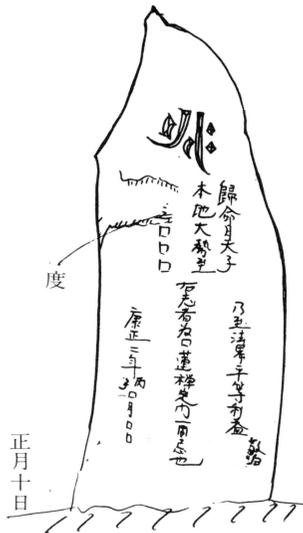 सः
歸命月天子
本地大勢至
□□□
度
乃至法界平等利益 敬白
右志者為□蓮禅定門一周忌也
康正二年丙子□月□□
正月十日